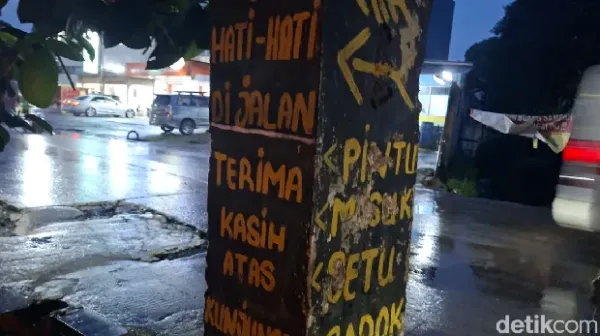 HATI-HATI
DI JALAN
TERIMA
KASIH
ATAS
KUNJUNG
<
<PINTU
<MASUK
<SETU
BADOK
detikcom